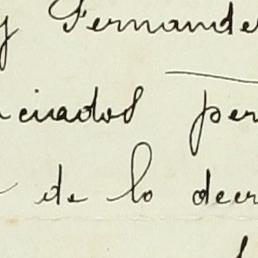 y Fernande
ciados per
de lo decr